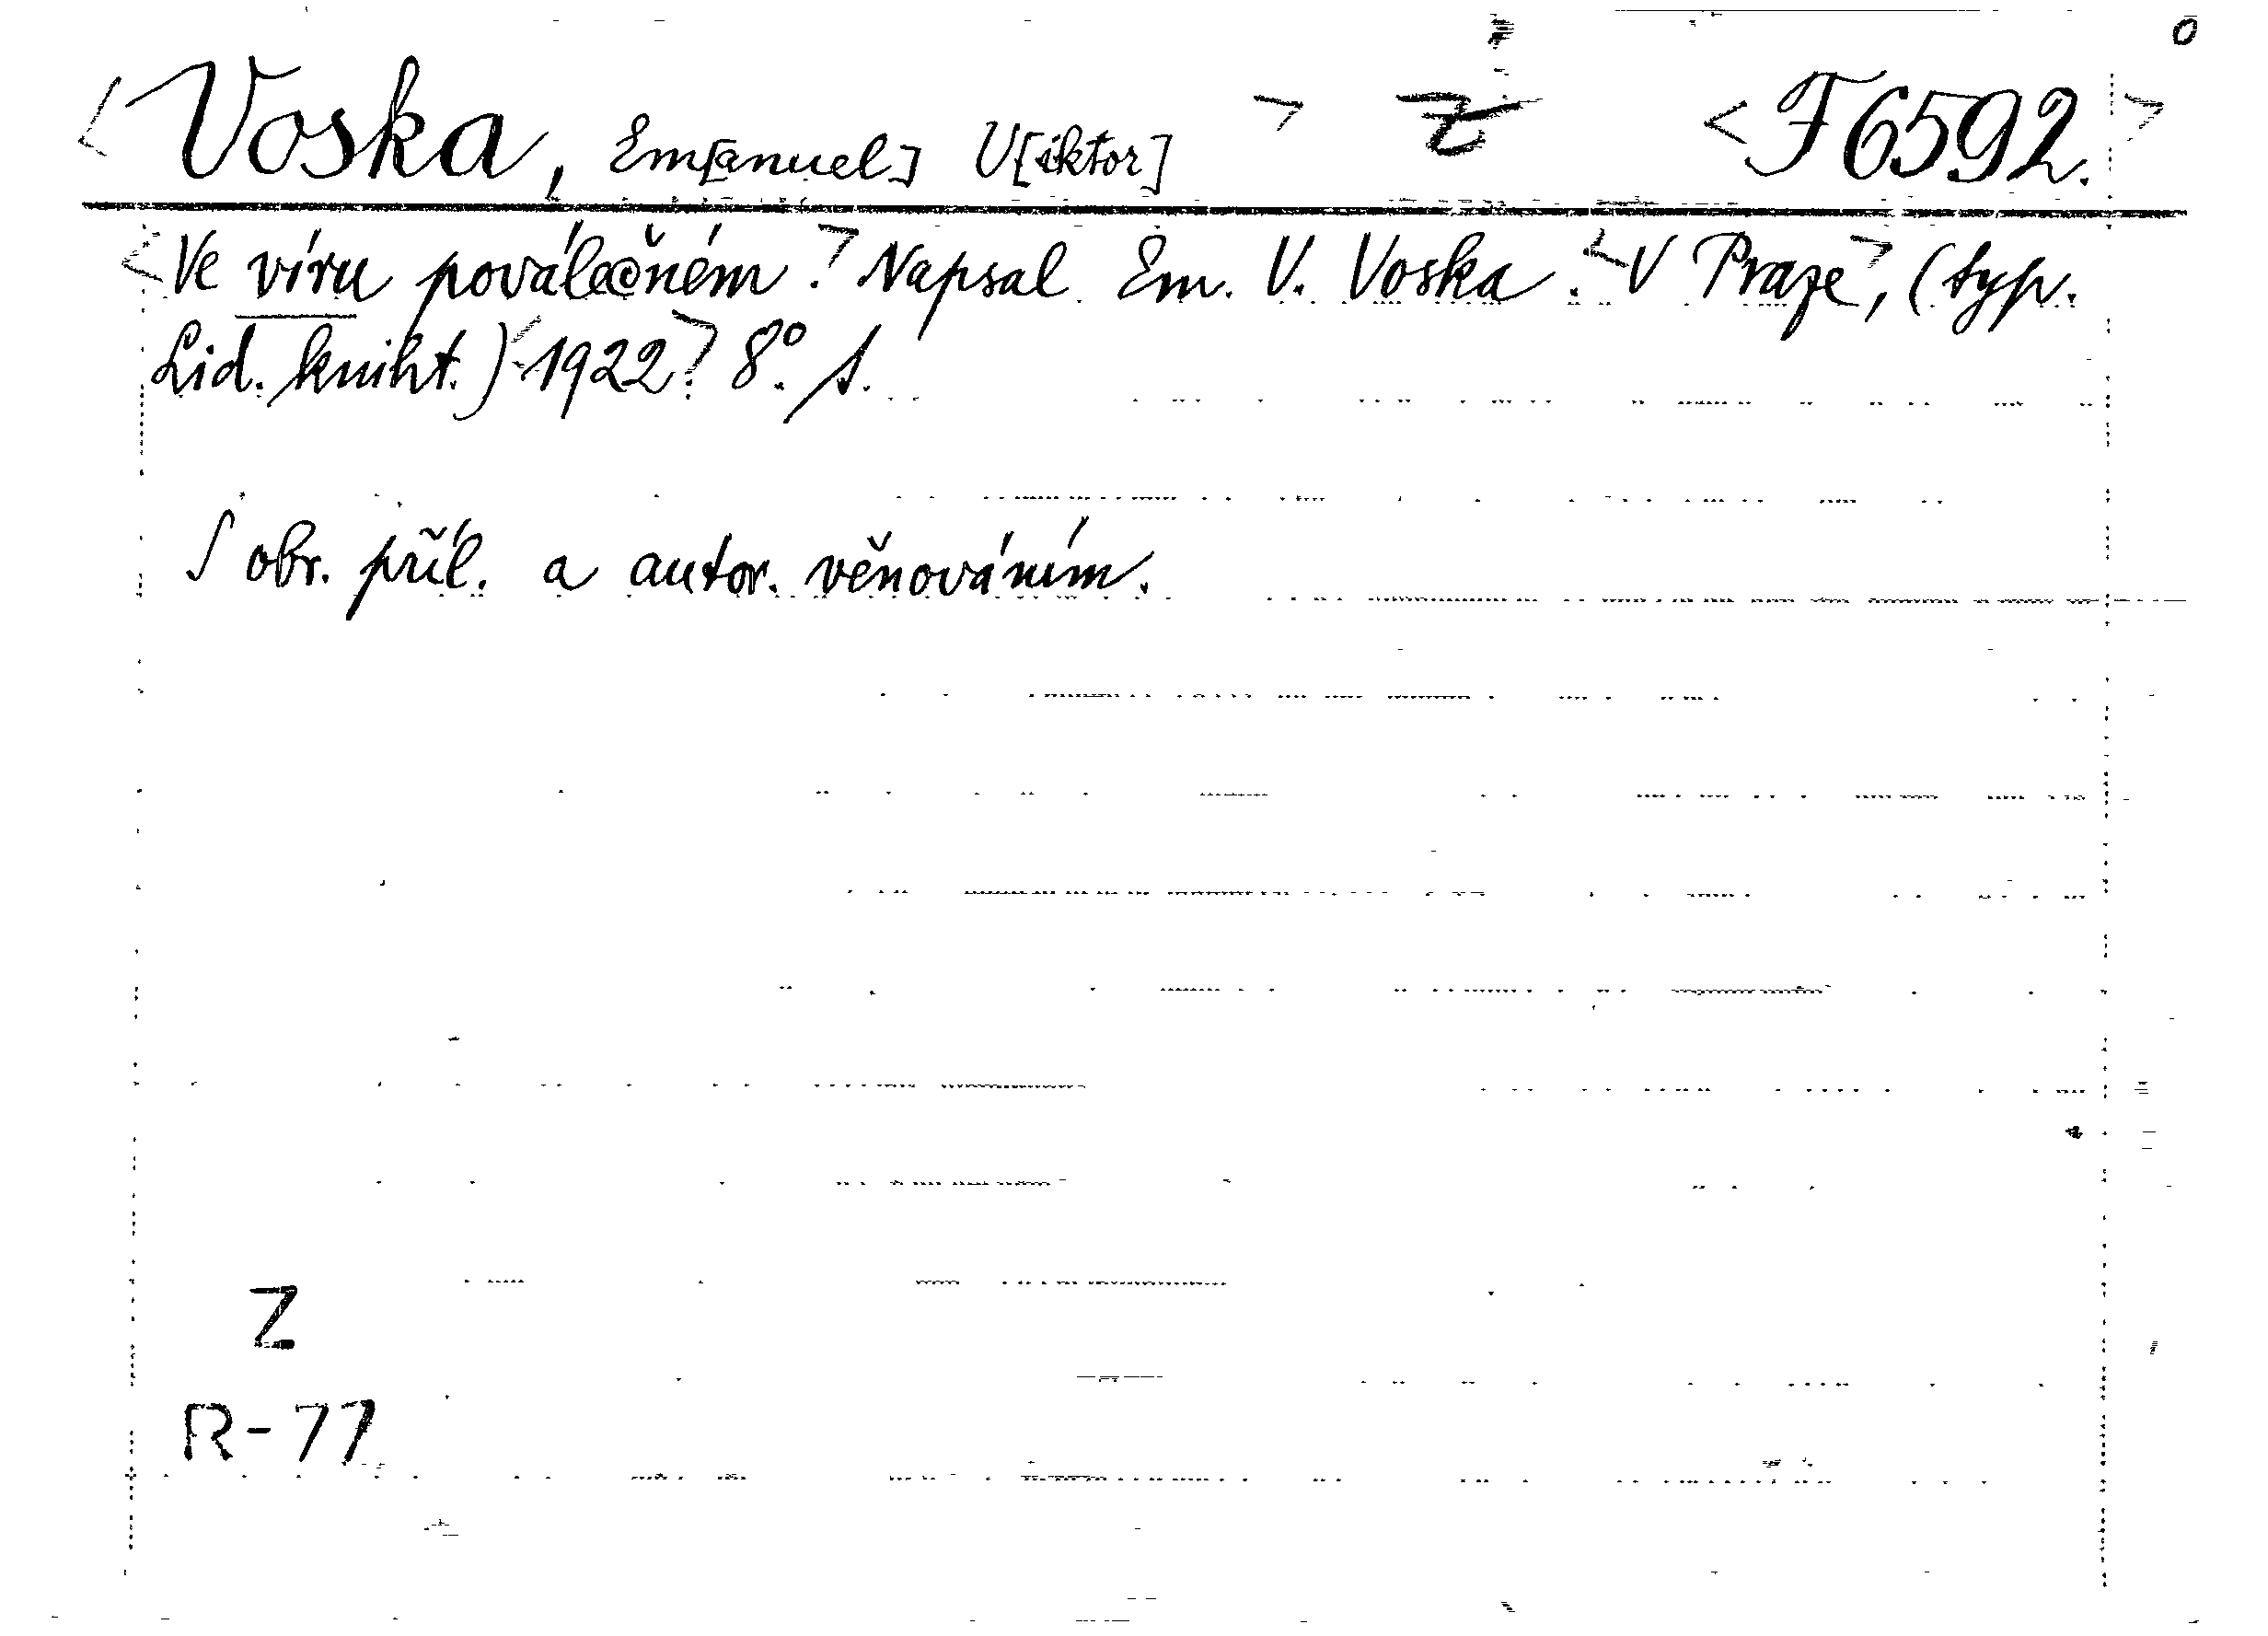 <Voska, Em[anuel] V[iktor]> Z <F 6592.> o
<Ve víru poválečném.> Napsal Em. V. Voska. <V Praze>, (typ.
Lid. kniht.) <1922.> 8°. s.
S obr. příl. a autor. věnováním.
Z
R-77